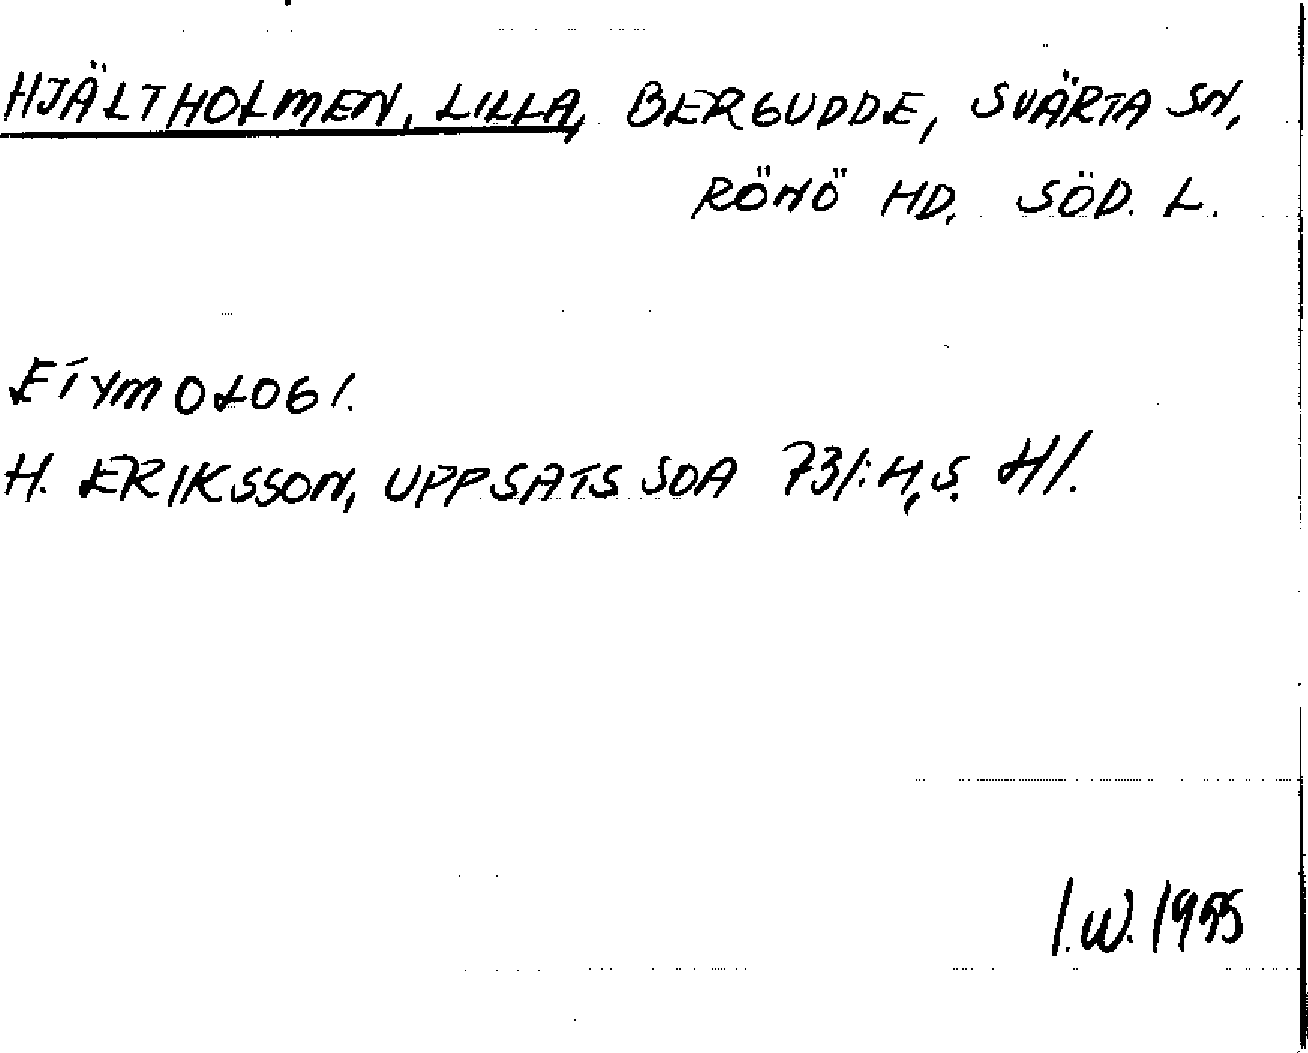 HJÄLTHOLMEN, LILLA, BERGUDDE, SVÄRTA SN,
RÖNÖ HD. SÖD. L.
ETYMOLOGI.
H. ERIKSSON, UPPSATS SOA 731:4, S. 41.
I.W. 1955